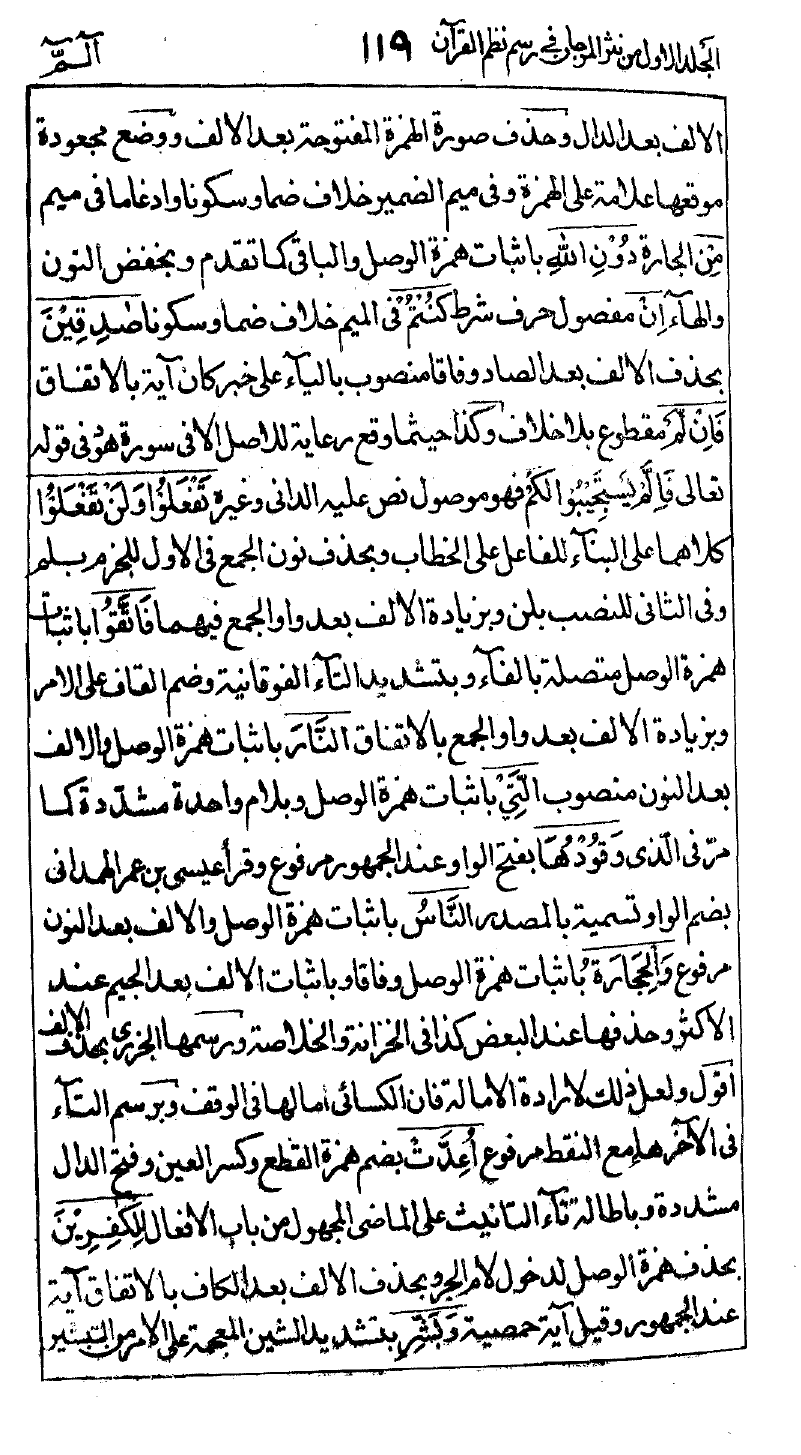 المجلد الاول من نثر المرجان في رسم نظم القرآن ١١٩ آلـمّ
الالف بعد الدال وحذف صورة الهمزة المفتوحة بعد الالف ووضع مجعودة
موقعها علامة على الهمزة وفى ميم الضمير خلاف ضما وسكونا وادغاما فى ميم
مِّنْ الجارة دُوْنِ اللهِ باثبات همزة الوصل والباقى كما تقدم وبخفض النون
والهاء اِنْ مفصول حرف شرط كُنْتُمْ فى الميم خلاف ضما وسكونا صٰدِقِيْنَ
بحذف الالف بعد الصاد وفاقا منصوب بالياء على خبر كان آية بالاتفاق
فَاِنْ لَّمْ مقطوع بلا خلاف وكذا حيثما وقع رعاية للاصل الا فى سورة هود فى قوله
تعالى فَاِلَّمْ يَسْتَجِيْبُوا لَكُمْ فهو موصول نص عليه الدانى وغيره تَفْعَلُوْا وَلَنْ تَفْعَلُوْا
كلاهما على البناء للفاعل على الخطاب وبحذف نون الجمع فى الاول للجزم بلم
وفى الثانى للنصب بلن وبزيادة الالف بعد واو الجمع فيهما فَاتَّقُوْا باثبات
همزة الوصل متصلة بالفاء وبتشديد التاء الفوقانية وضم القاف على الامر
وبزيادة الالف بعد واو الجمع بالاتفاق النَّارَ باثبات همزة الوصل والالف
بعد النون منصوب الَّتِىْ باثبات همزة الوصل وبلام واحدة مشددة كما
مرّ فى الّذى وَقُوْدُهَا بفتح الواو عند الجمهور مرفوع وقرأ عيسى بن عمر الهمدانى
بضم الواو تسمية بالمصدر النَّاسُ باثبات همزة الوصل والالف بعد النون
مرفوع وَالْحِجَارَةُ باثبات همزة الوصل وفاقا وباثبات الالف بعد الجيم عند
الاكثر وحذفها عند البعض كذا فى الخزانة والخلاصة ورسمها الجزرى بحذف الالف
اقول ولعل ذلك لارادة الامالة فان الكسائى امالها فى الوقف وبرسم التاء
فى الآخر هاء مع النقط مرفوع اُعِدَّتْ بضم همزة القطع وكسر العين وفتح الدال
مشددة وباطالة تاء التانيث على الماضى المجهول من باب الافعال لِلْكٰفِرِيْنَ
بحذف همزة الوصل لدخول لام الجر وبحذف الالف بعد الكاف بالاتفاق آية
عند الجمهور وقيل آية حمصية وَبَشِّرِ بتشديد الشين المعجمة على الامر من التبشير